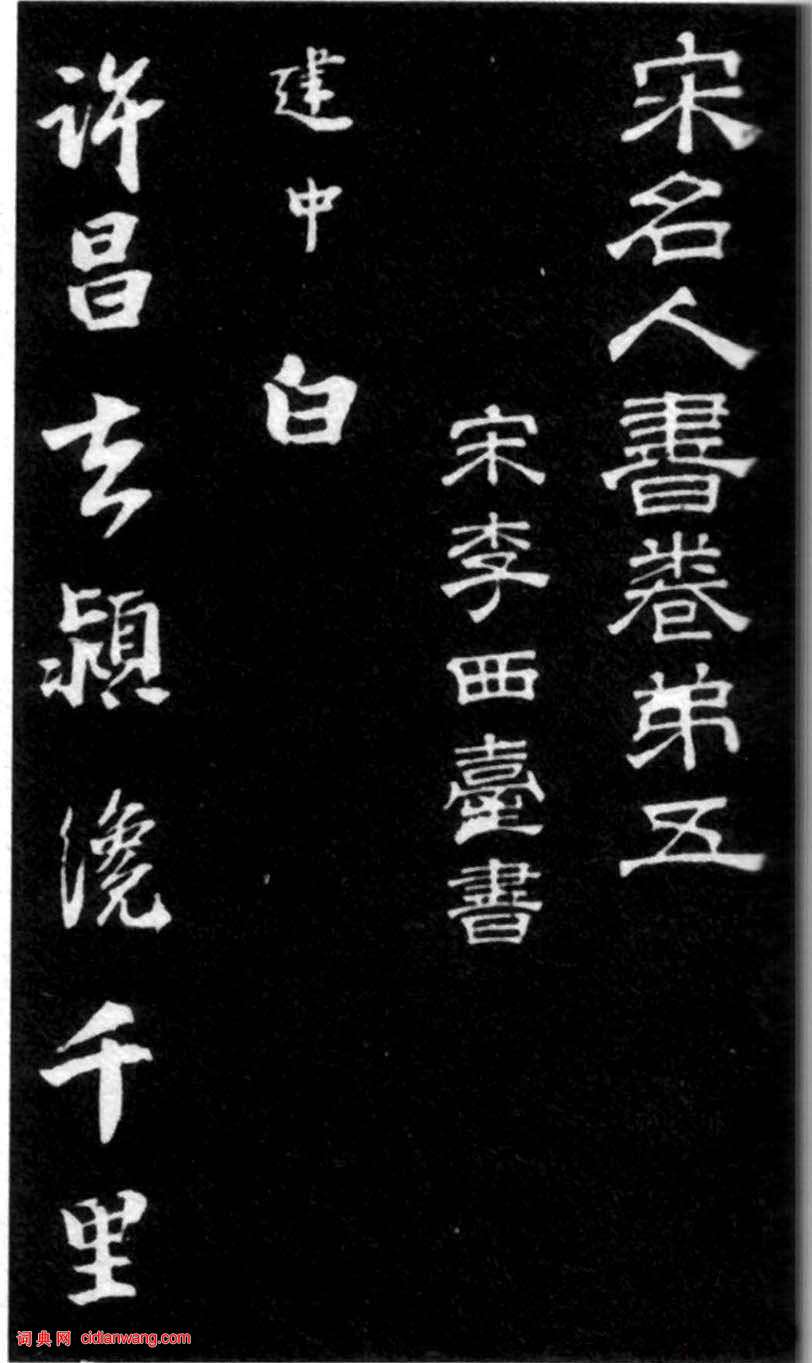 宋名人書卷弟五
宋李西臺書
建中
白
許昌去潁濸千里
词典网 cidianwang.com